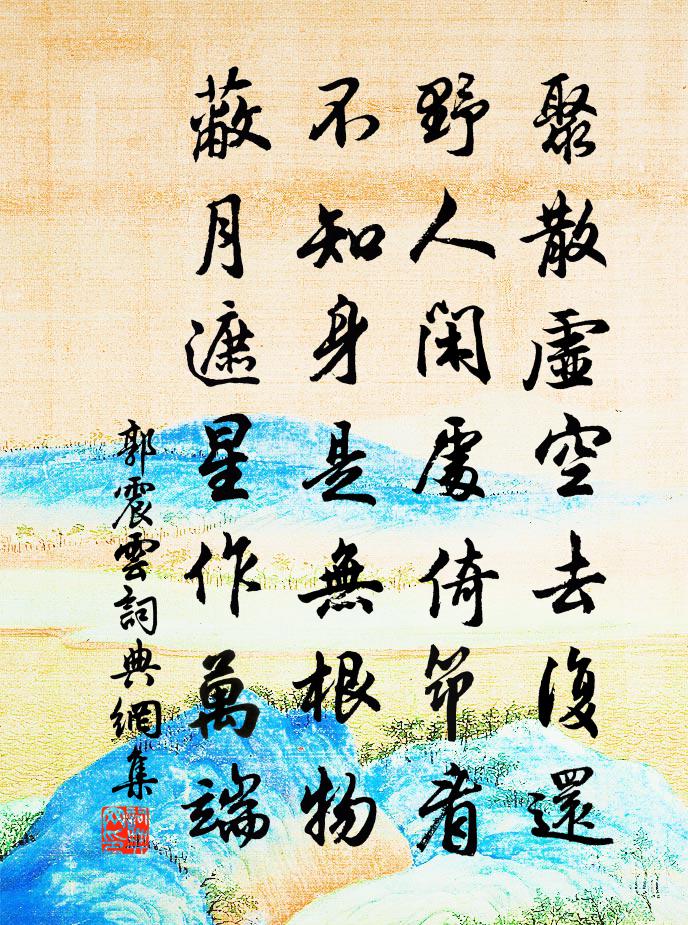 聚散虛空去復還
野人閑處倚筇看
不知身是無根物
蔽月遮星作萬端
郭震雲詞典網集